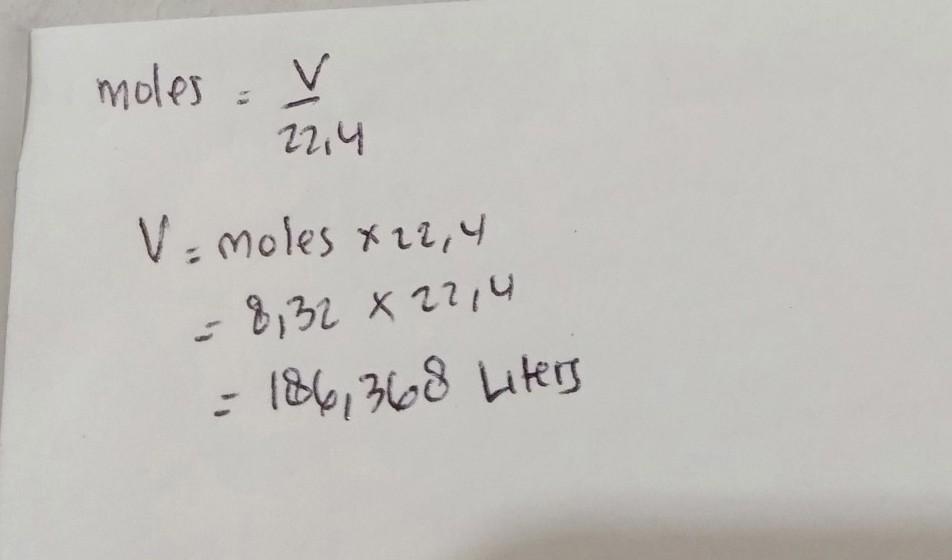 moles = V
22,4
V = moles x 22,4
= 8,32 x 22,4
= 186,368 Liters